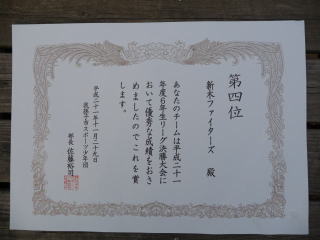 第四位
新木ファイターズ 殿
あなたのチームは平成二十一
年度6年生リーグ決勝大会に
おいて優秀な成績をおさ
めましたのでこれを賞
します。
平成二十一年十一月二十九日
我孫子市スポーツ少年団
部長 佐藤裕司